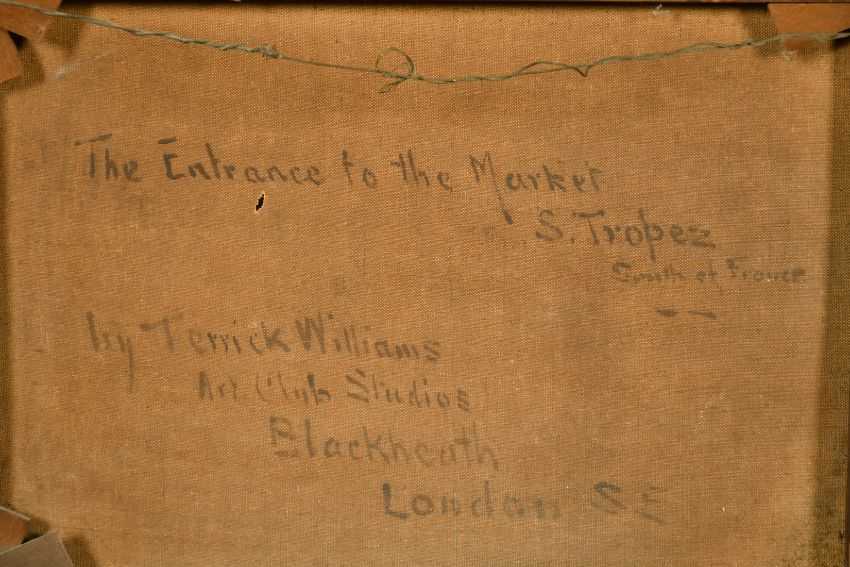 The Entrance to the Market
S. Tropez
South of France
by Terrick Williams
Art Club Studios
Blackheath
London SE